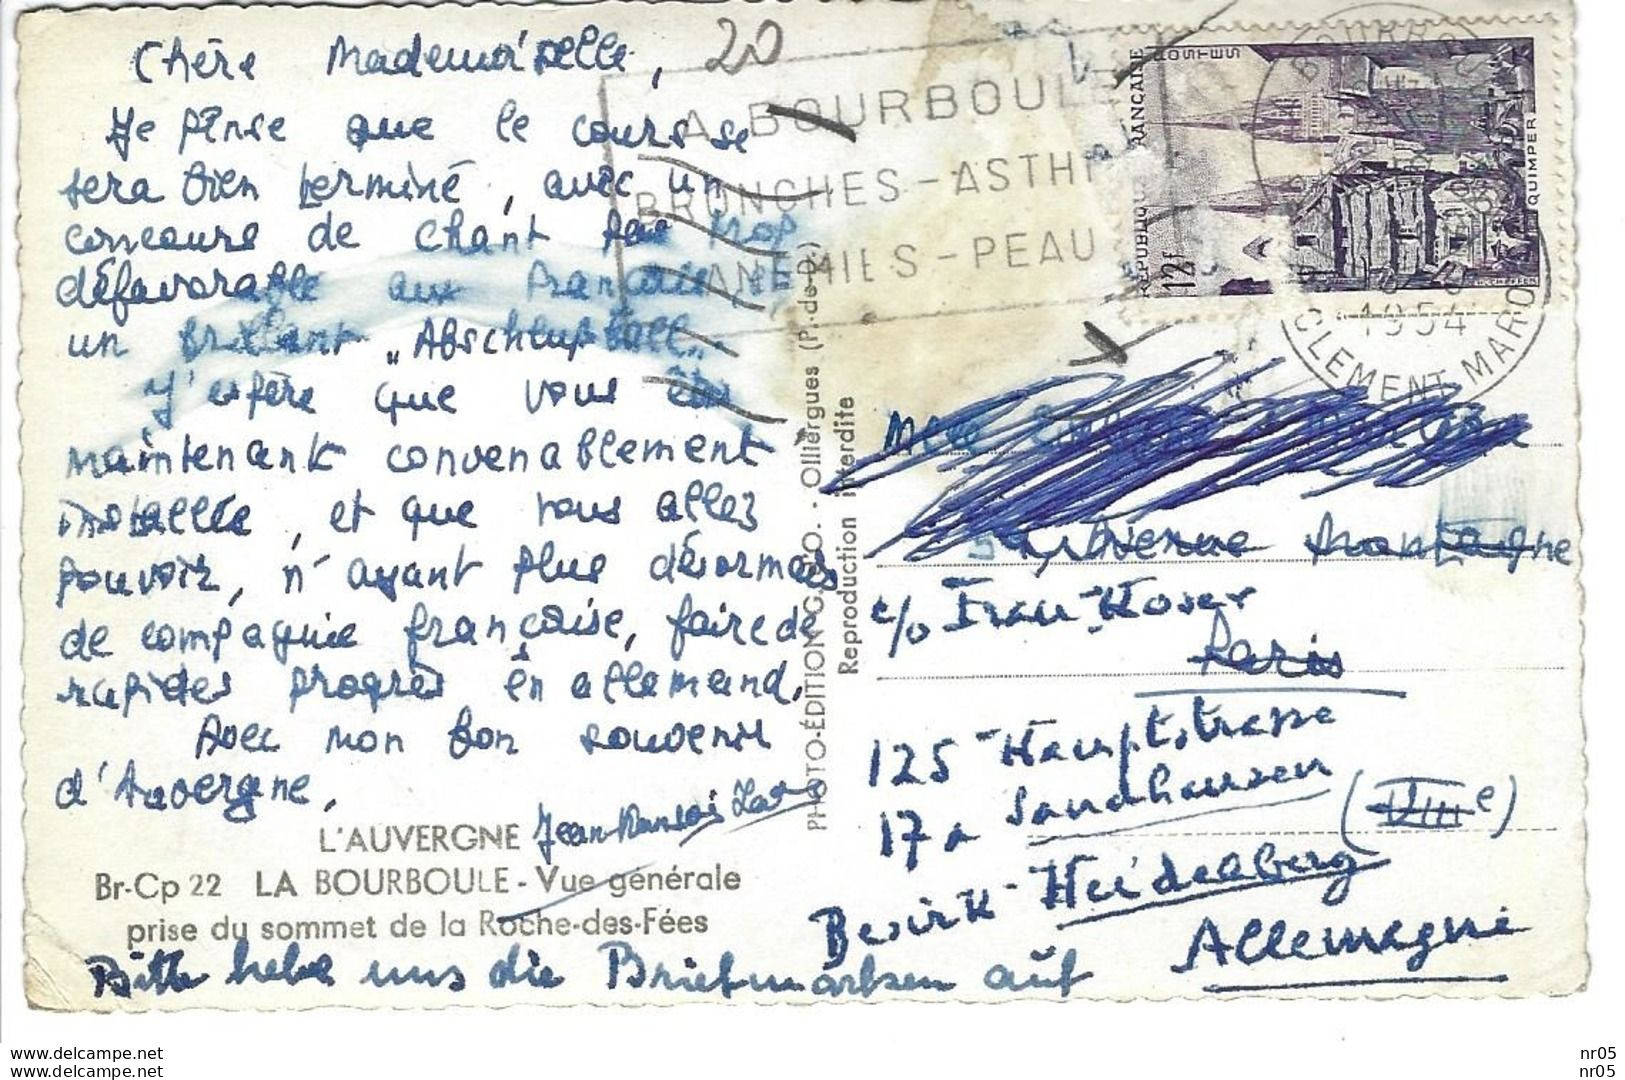 Chère Mademoiselle,
Je pense que le cours se
sera bien terminé, avec un
concours de chant pas trop
défavorable aux Français
un brillant „Abschlußball".
J'espère que vous êtes
maintenant convenablement
installée, et que vous allez
pouvoir, n'ayant plus désormais
de compagnie française, faire de
rapides progrès en allemand.
Avec mon bon souvenir
d'Auvergne,
Jean-François
L'AUVERGNE
Br-Cp 22 LA BOURBOULE - Vue générale
prise du sommet de la Roche-des-Fées
Bitte hebe uns die Briefmarken auf
20
LA BOURBOULE
BRONCHES - ASTHME
ANEMIES - PEAU
REPUBLIQUE FRANÇAISE
POSTES
12F
QUIMPER
BOURBOULE
1954
CLEMENT MAROT
PHOTO-ÉDITION G. O. - Olliergues (P.-de-D.)
Reproduction interdite
c/o Frau
Paris
125 Hauptstrasse
17a Sandhausen
(VIIIe)
Bezirk Heidelberg
Allemagne
www.delcampe.net
www.delcampe.net
nr05
nr05